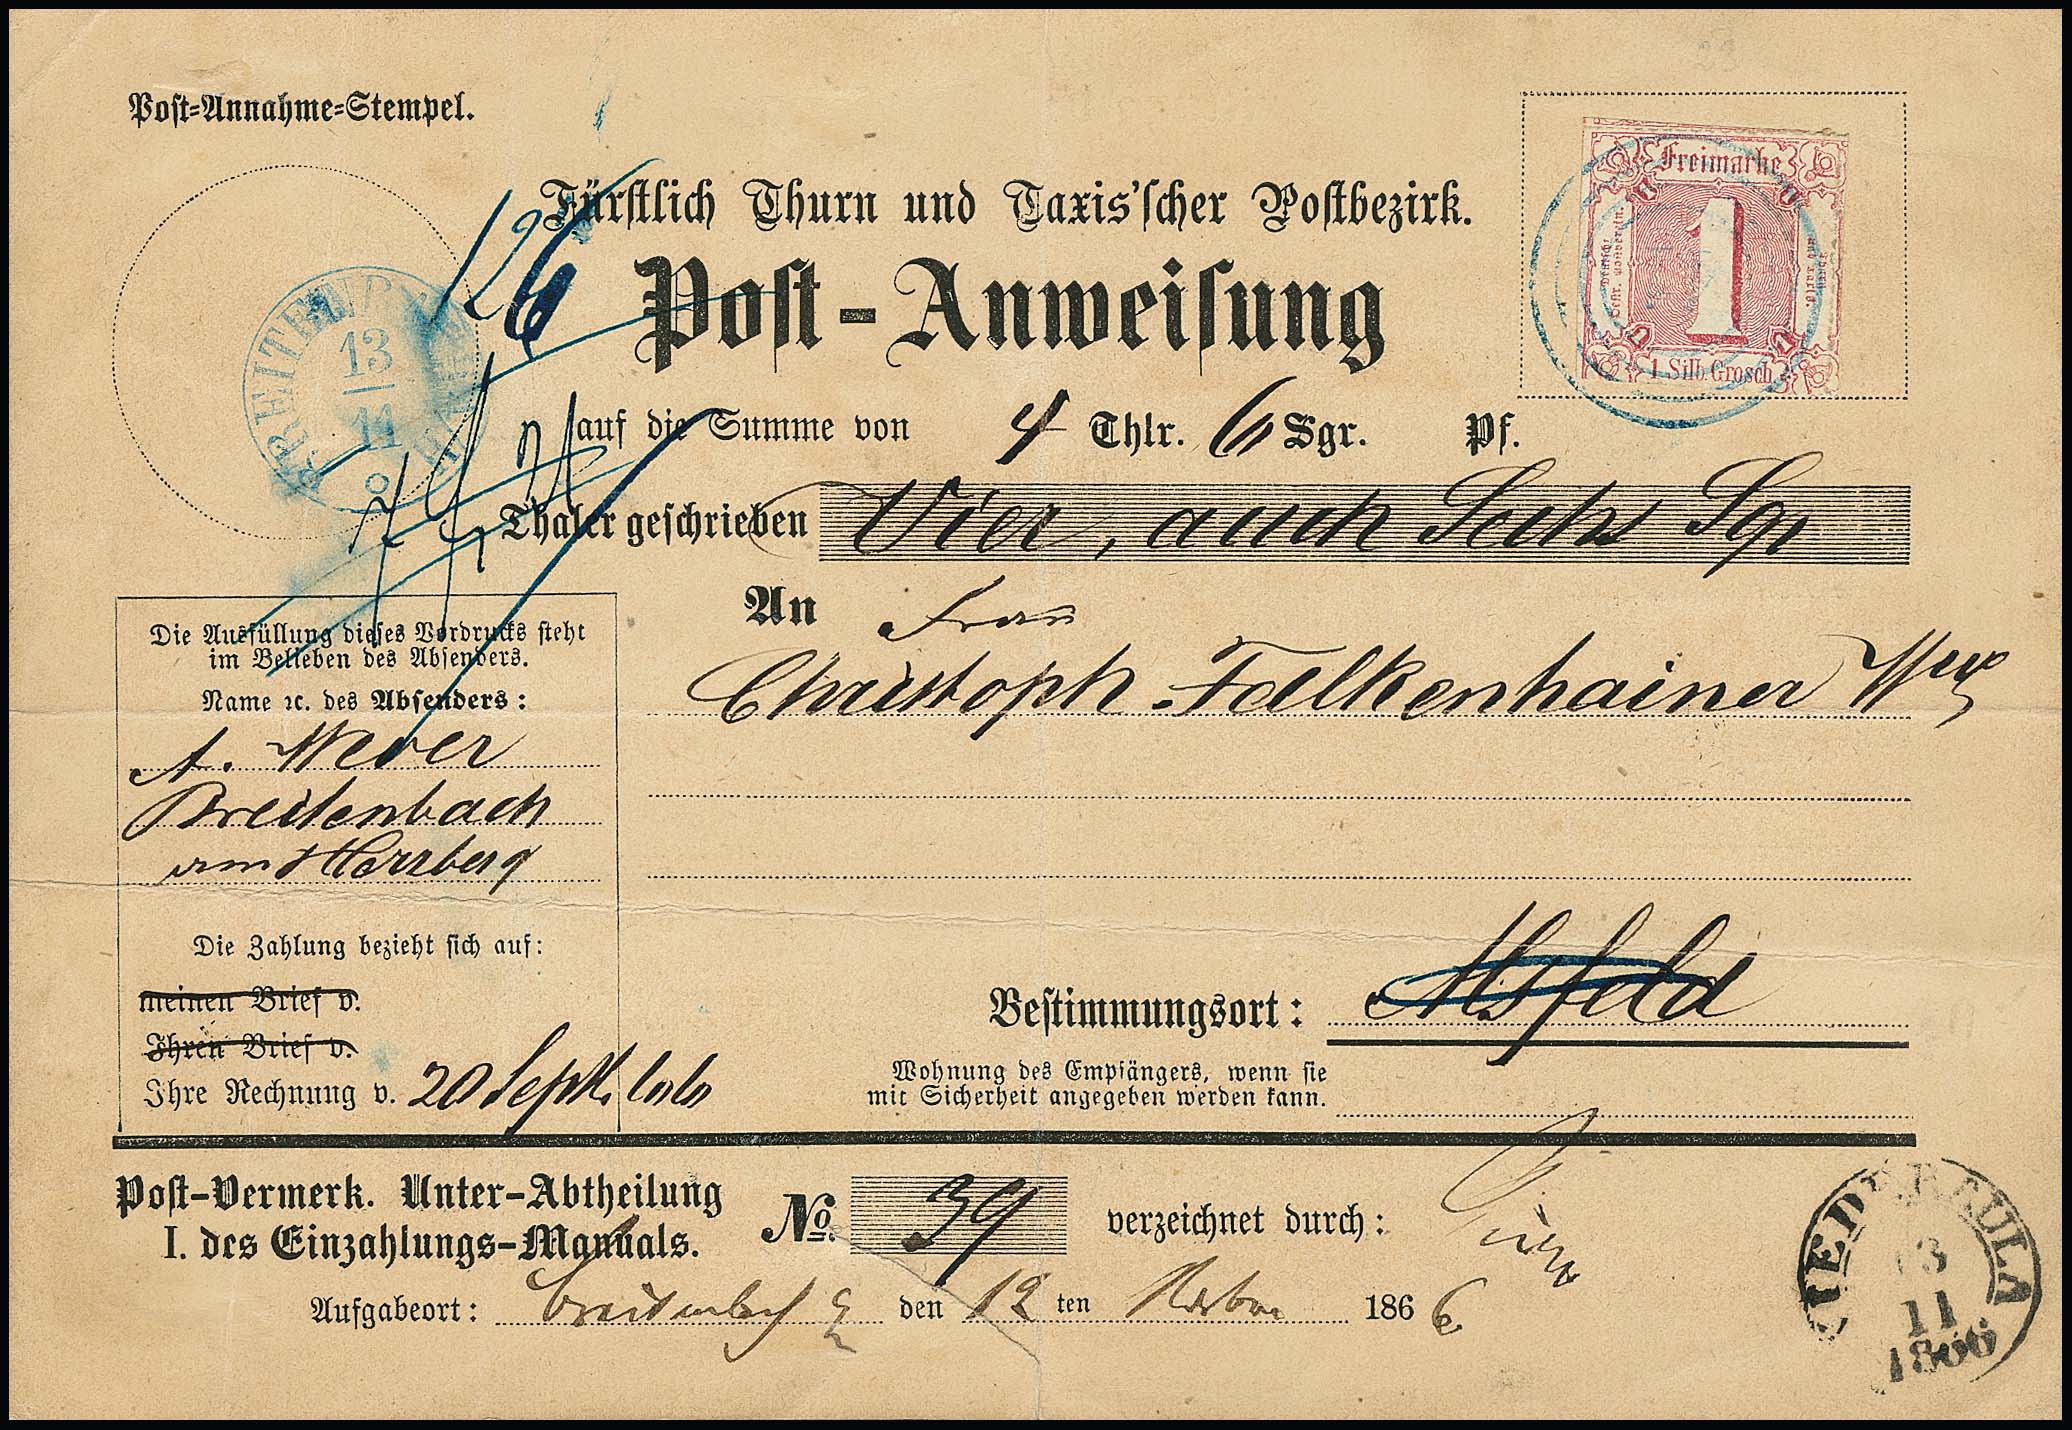 Post-Annahme-Stempel.
Fürstlich Thurn und Taxis'scher Postbezirk.
126
Post-Anweisung
Freimarke
1
1 Silb. Grosch
BREITENB
13
11
auf die Summe von 4 Thlr. 6 Sgr. Pf.
Thaler geschrieben Vier, auch Sechs Sgr
An Frau
Christoph Falkenhainer
Die Ausfüllung dieses Vordrucks steht
im Belieben des Absenders.
Name ꝛc. des Absenders:
A. Wever
Breitenbach
am Herzberg
Die Zahlung bezieht sich auf:
meinen Brief v.
Ihren Brief v.
Ihre Rechnung v. 20 Sept.
Bestimmungsort: Alsfeld
Wohnung des Empfängers, wenn sie
mit Sicherheit angegeben werden kann.
Post-Vermerk. Unter-Abtheilung
I. des Einzahlungs-Manuals.
No. 39 verzeichnet durch:
Aufgabeort: Breitenbach den 12 ten 1866
NIEDERAULA
13
11
1866